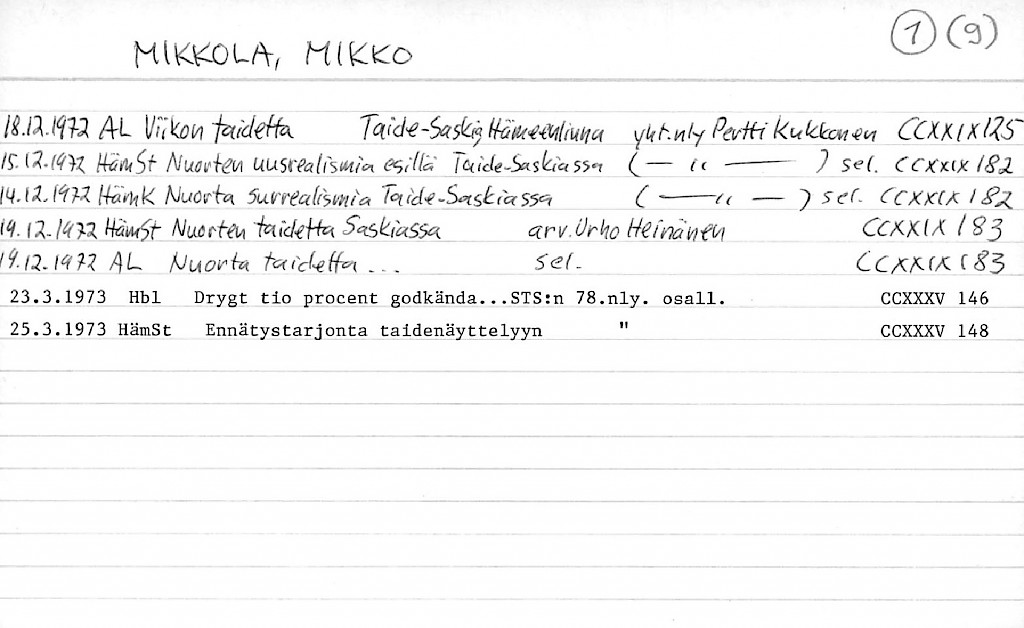 MIKKOLA, MIKKO 1 (9)
18.12.1972 AL Viikon taidetta Taide-Saskia, Hämeenlinna yht.nly Pertti Kukkonen CCXXIX 125
15.12.1972 HämSt Nuorten uusrealismia esillä Taide-Saskiassa (— " —) sel. CCXXIX 182
14.12.1972 HämK Nuorta surrealismia Taide-Saskiassa (— " —) sel. CCXXIX 182
19.12.1972 HämSt Nuorten taidetta Saskiassa arv. Urho Heinänen CCXXIX 183
19.12.1972 AL Nuorta taidetta ... sel. CCXXIX 183
23.3.1973 Hbl Drygt tio procent godkända...STS:n 78.nly. osall. CCXXXV 146
25.3.1973 HämSt Ennätystarjonta taidenäyttelyyn " CCXXXV 148